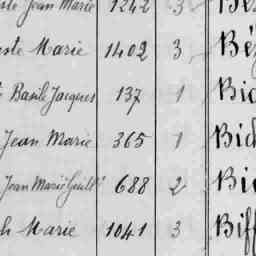 Jean Marie 1242 3
Marie 1402 3 Béz
Basile Jacques 137 1 Bic
Jean Marie 365 1 Bich
Jean Marie Guill. 688 2 Bie
Marie 1041 3 Biff